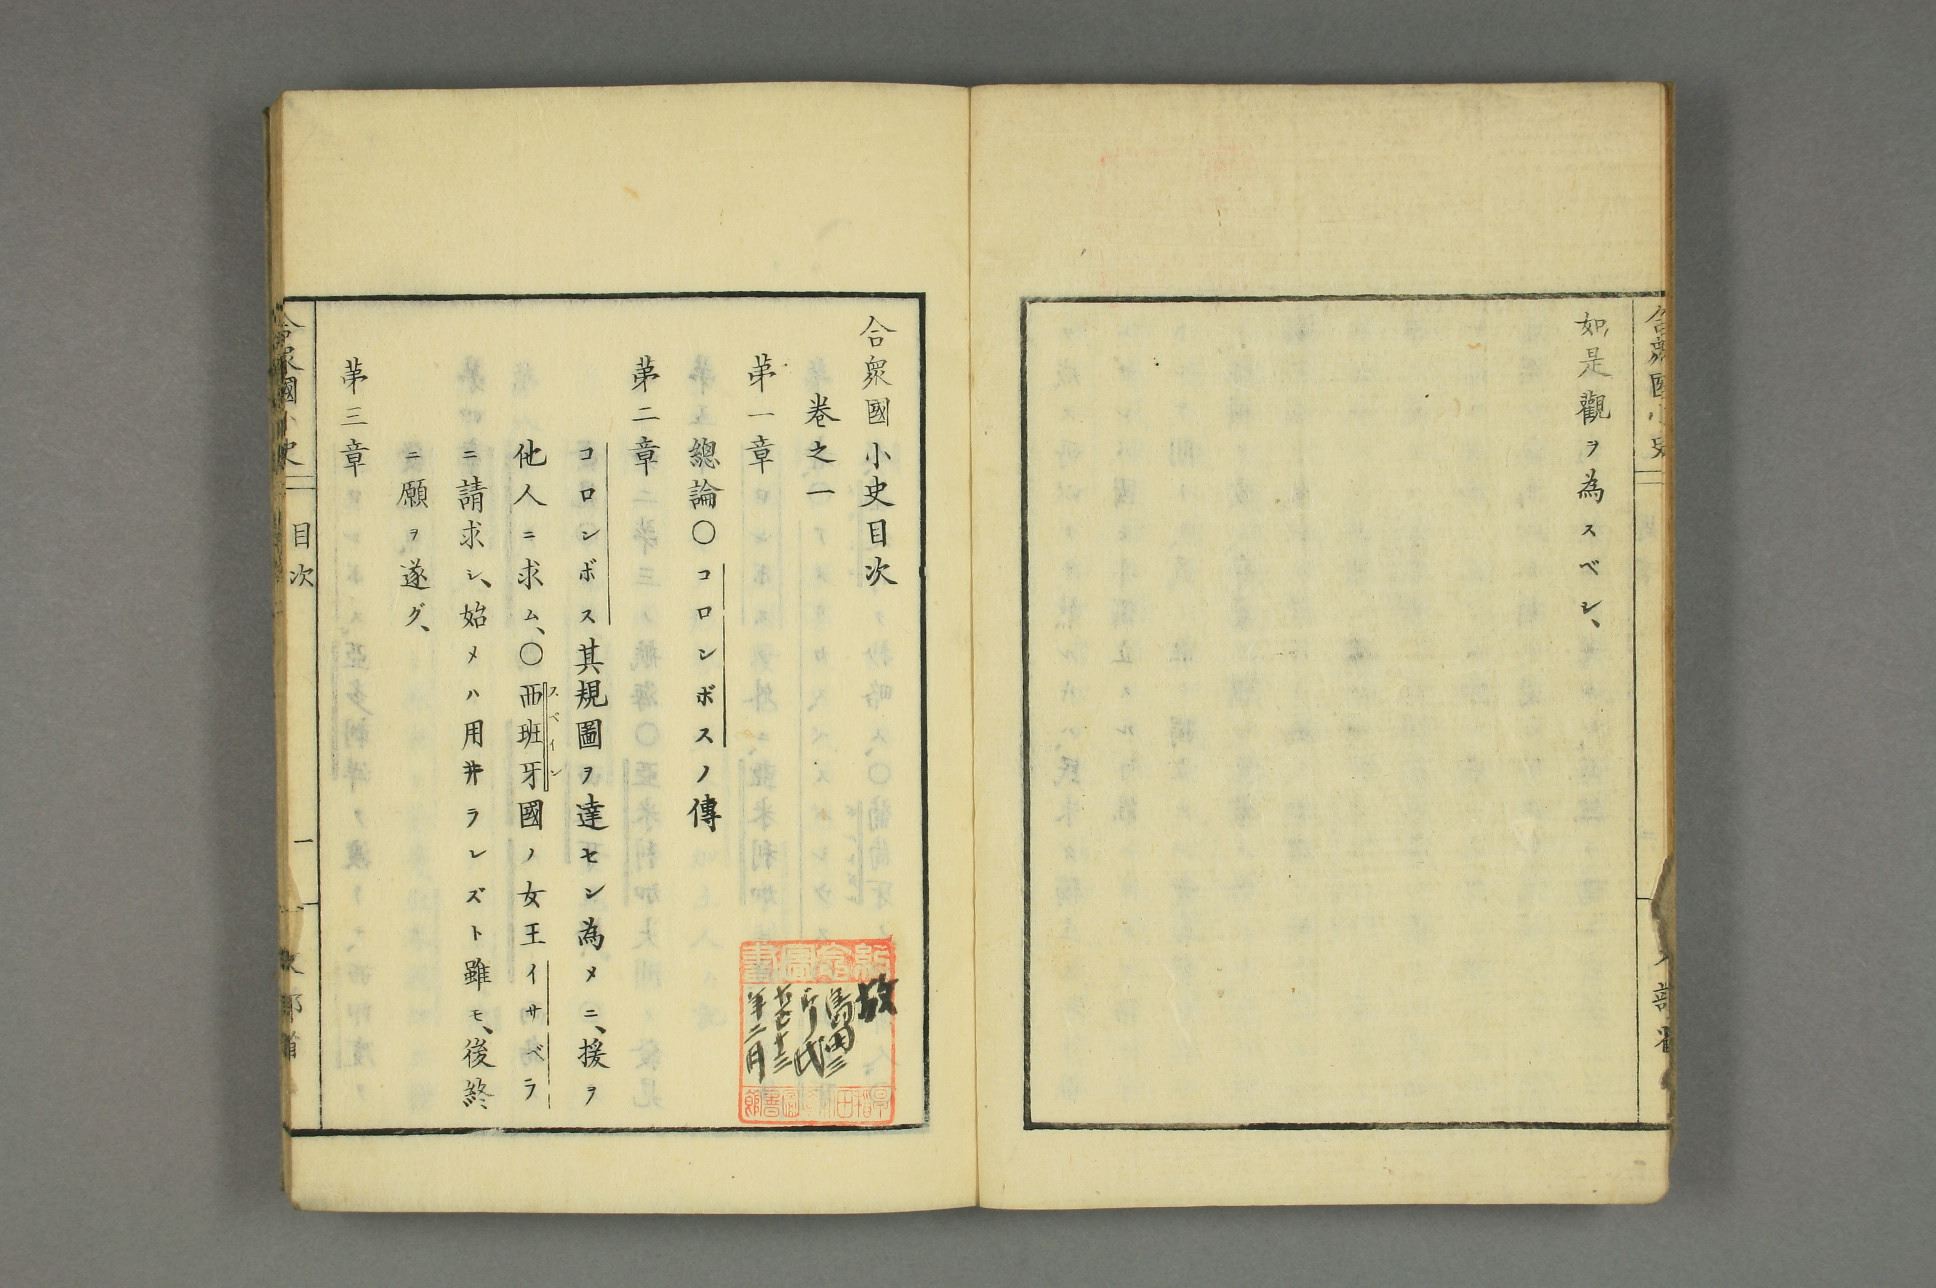 如是觀ヲ為スベシ、
合衆國小史目次
卷之一
第一章
總論〇コロンボスノ傳
第二章
コロンボス其規圖ヲ達セン為メニ、援ヲ
他人ニ求ム、〇西班牙國ノ女王イサベラ
スベイン
ニ請求シ、始メハ用井ラレズト雖モ、後終
ニ願ヲ遂グ、
第三章
合衆國小史
目次
一
文部省